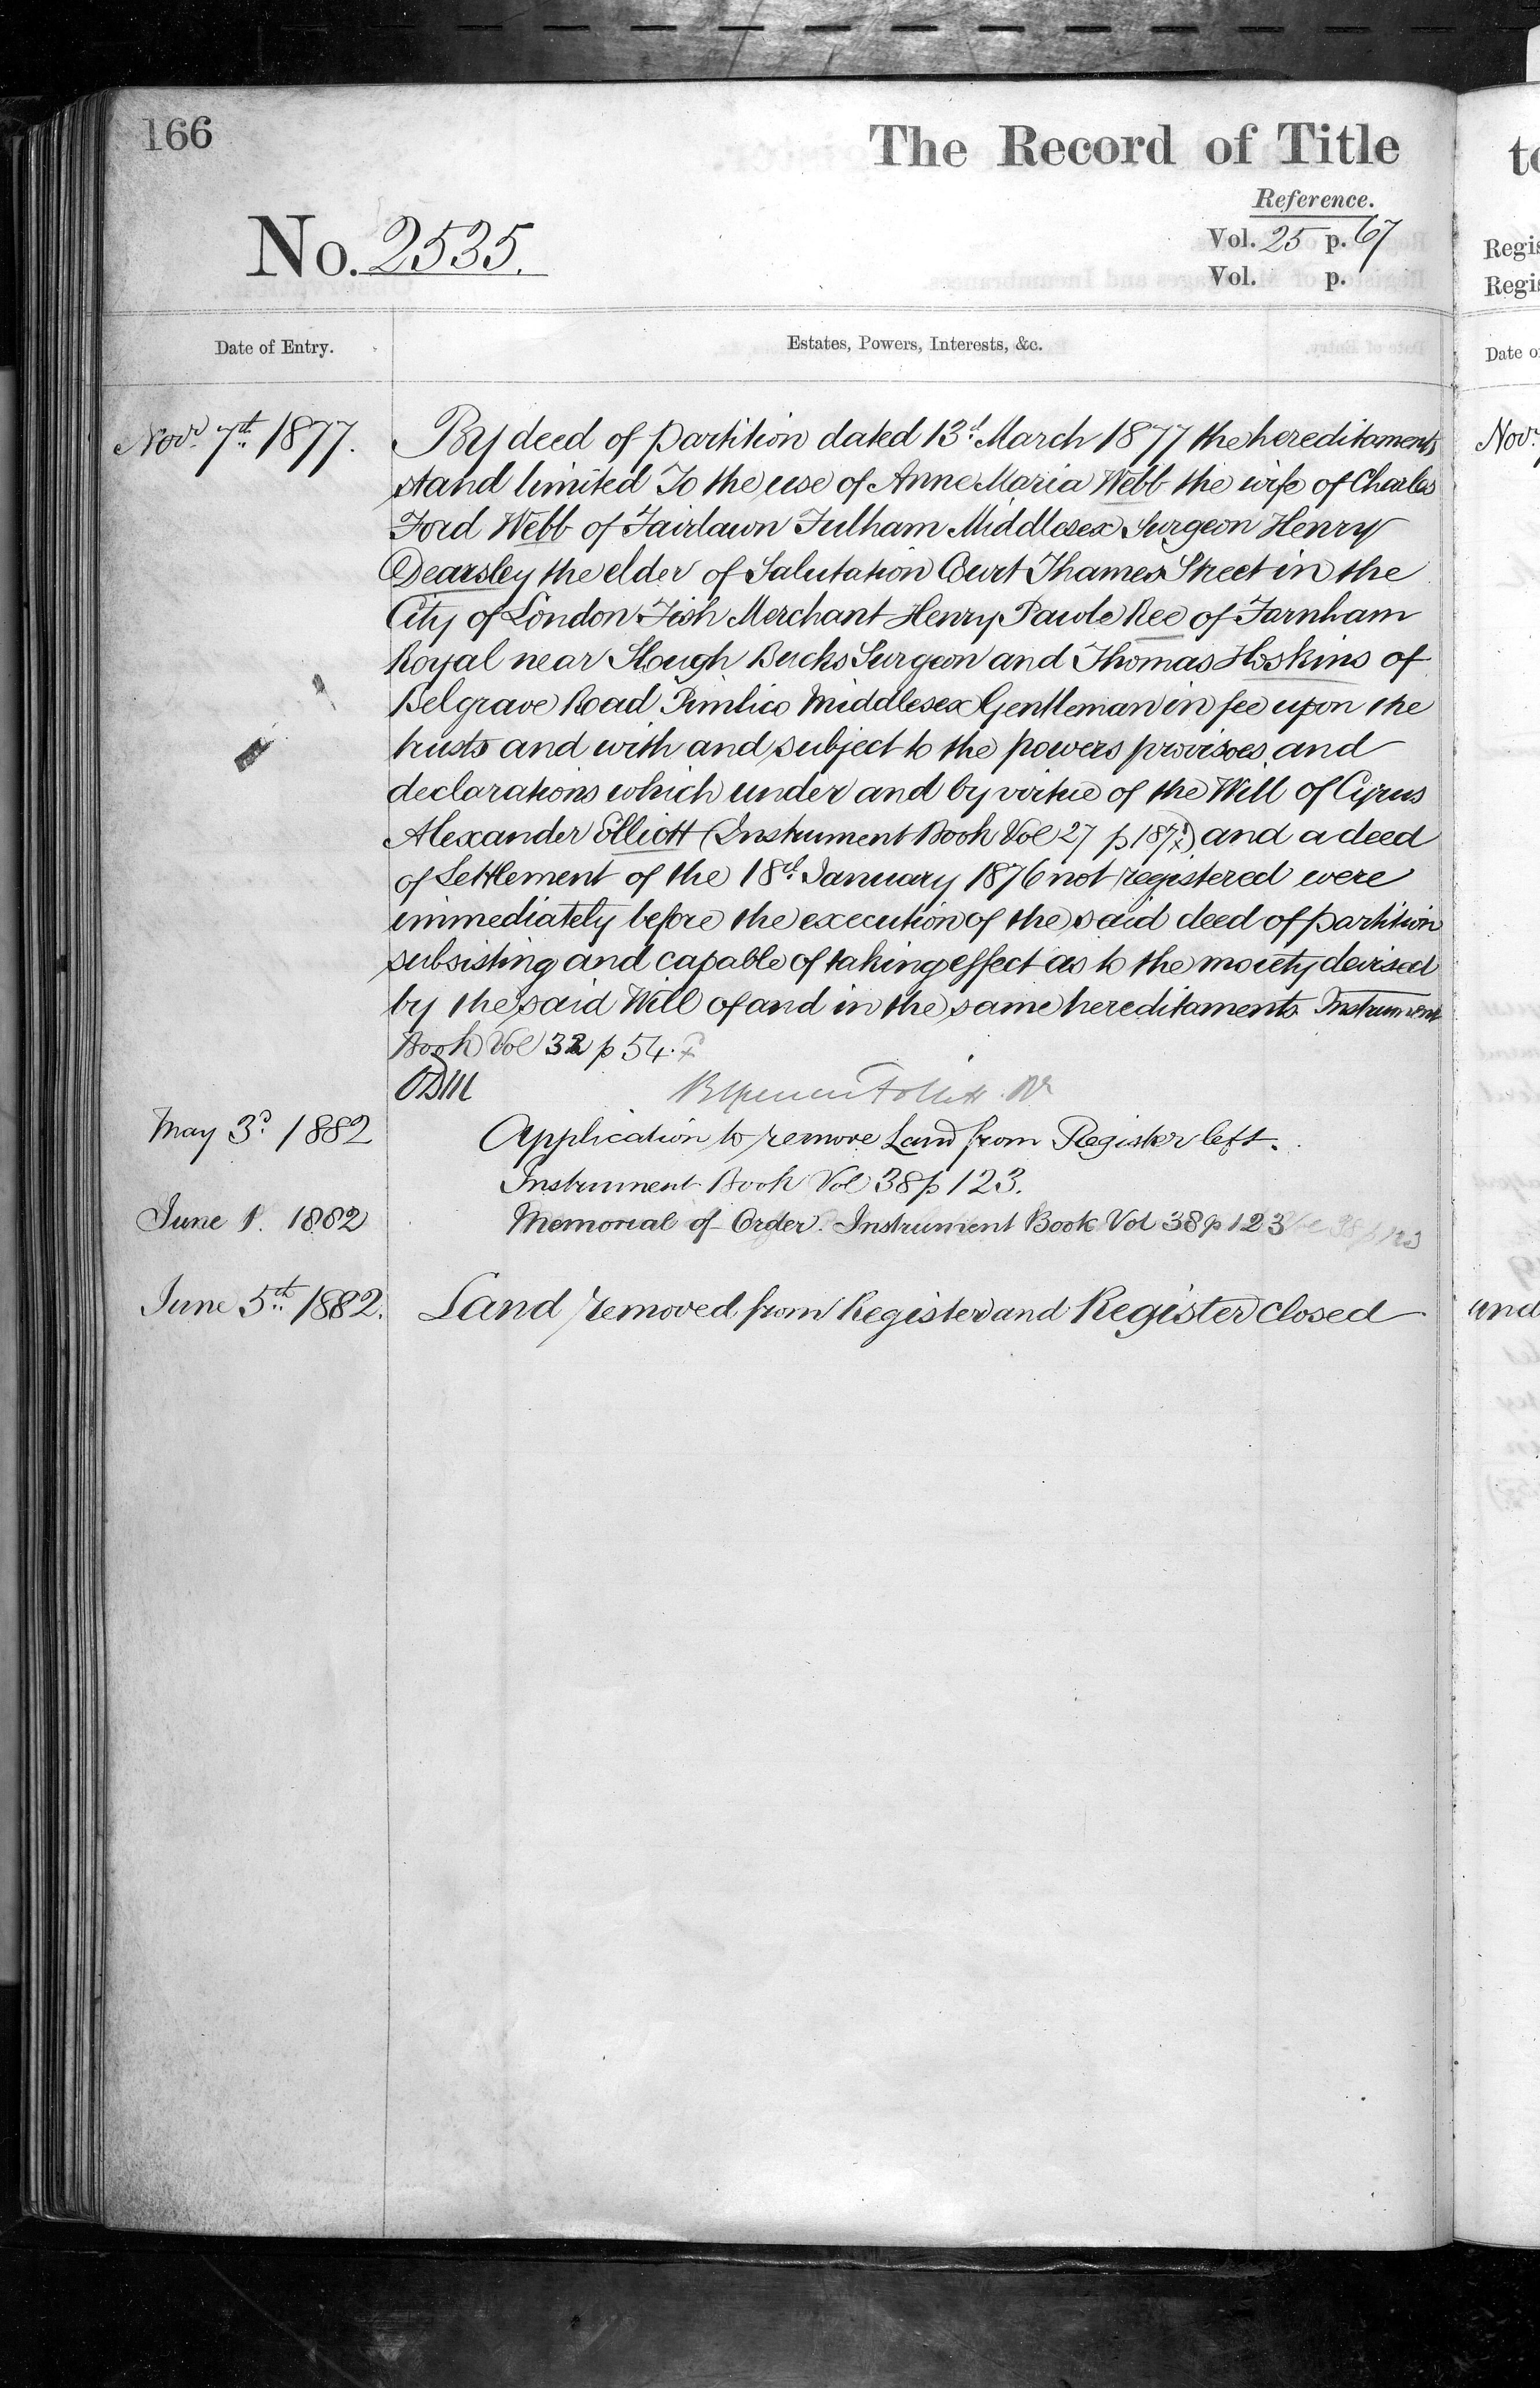 166
The Record of Title
Reference.
No. 2535.
Vol. 25 p. 67
Vol. p.
Date of Entry.
Estates, Powers, Interests, &c.
Novr. 7th 1877.
By deed of partition dated 13th March 1877 the hereditaments
stand limited To the use of Anne Maria Webb the wife of Charles
Ford Webb of Fairlawn Fulham Middlesex Surgeon Henry
Dearsley the elder of Salutation Court Thames Street in the
City of London Fish Merchant Henry Pawle Ree of Farnham
Royal near Slough Bucks Surgeon and Thomas Hoskins of
Belgrave Road Pimlico Middlesex Gentleman in fee upon the
trusts and with and subject to the powers provisoes and
declarations which under and by virtue of the Will of Cyrus
Alexander Elliott (Instrument Book Vol 27 p 187) and a deed
of Settlement of the 18th January 1876 not registered were
immediately before the execution of the said deed of partition
subsisting and capable of taking effect as to the moiety devised
by the said Will of and in the same hereditaments. Instrument
Book Vol 32 p 54.
May 3d 1882
Application to remove Land from Register left.
Instrument Book Vol 38 p 123.
June 1. 1882
Memorial of Order. Instrument Book Vol 38 p 123
June 5th 1882.
Land removed from Register and Register closed
to
Regis
Regis
Date o
Nov.
and